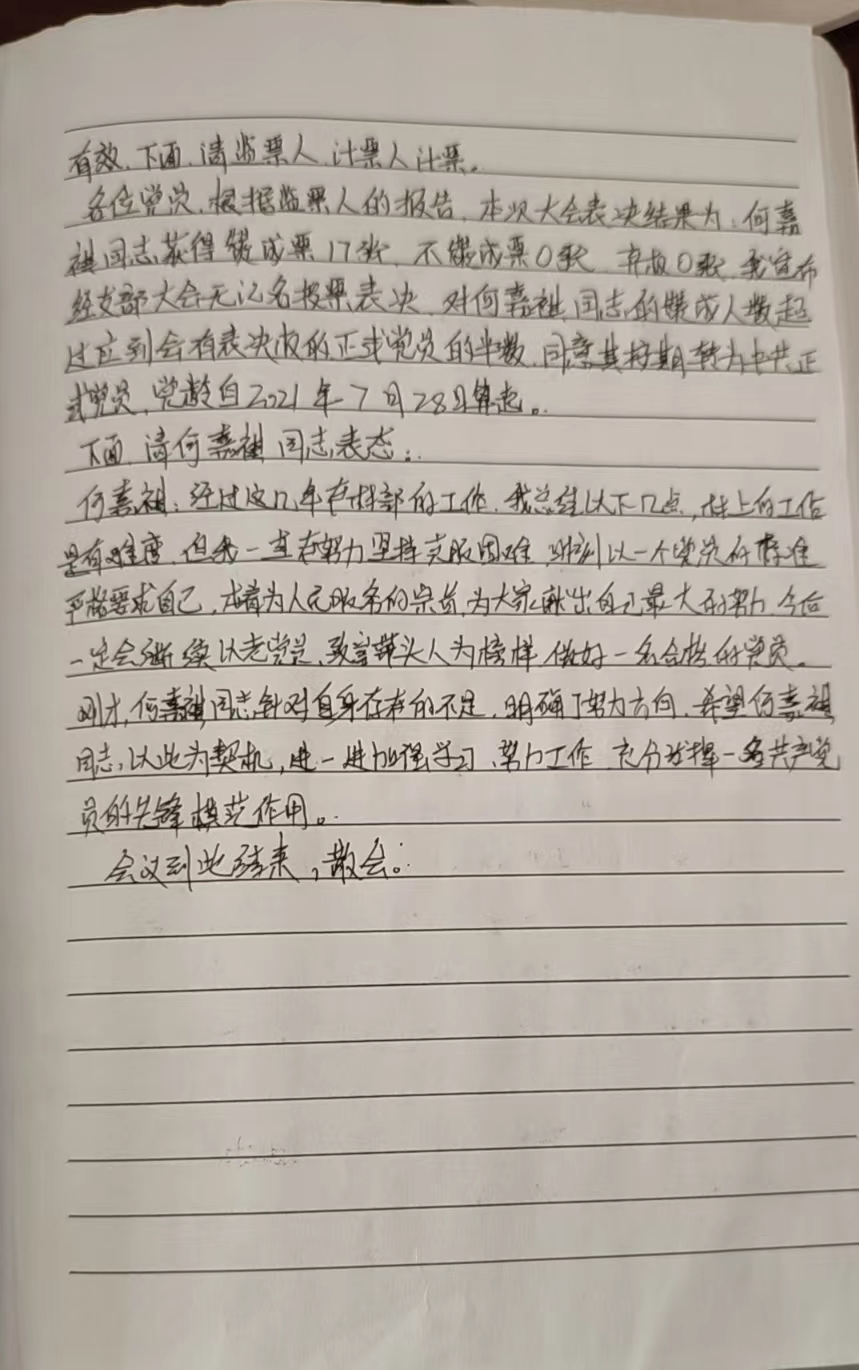 有效、下面、请监票人、计票人计票。
各位党员、根据监票人的报告、本次大会表决结果为：何嘉
祖同志获得赞成票17张、不赞成票0张、弃权0张、我宣布
经支部大会无记名投票表决、对何嘉祖同志的赞成人数超
过应到会有表决权的正式党员的半数、同意其按期转为中共正
式党员、党龄自2021年7月28日算起。
下面、请何嘉祖同志表态：
何嘉祖：经过这几年在村部的工作、我总结以下几点，村上的工作
是有难度、但我一直在努力坚持克服困难、时刻以一个党员的标准
严格要求自己，本着为人民服务的宗旨，为大家献出自己最大的努力、今后
一定会继续以老党员、致富带头人为榜样、做好一名合格的党员。
刚才，何嘉祖同志针对自身存在的不足，明确了努力方向、希望何嘉祖
同志，以此为契机，进一进加强学习、努力工作、充分发挥一名共产党
员的先锋模范作用。
会议到此结束，散会。